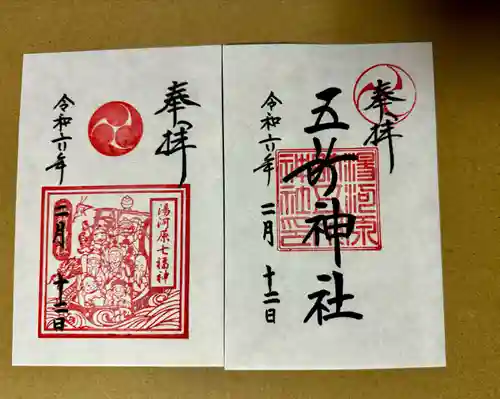 奉拝
令和六年
湯河原七福神
二月
十二日
奉拝
五所神社
湯河原
神社印
令和六年
二月
十二日